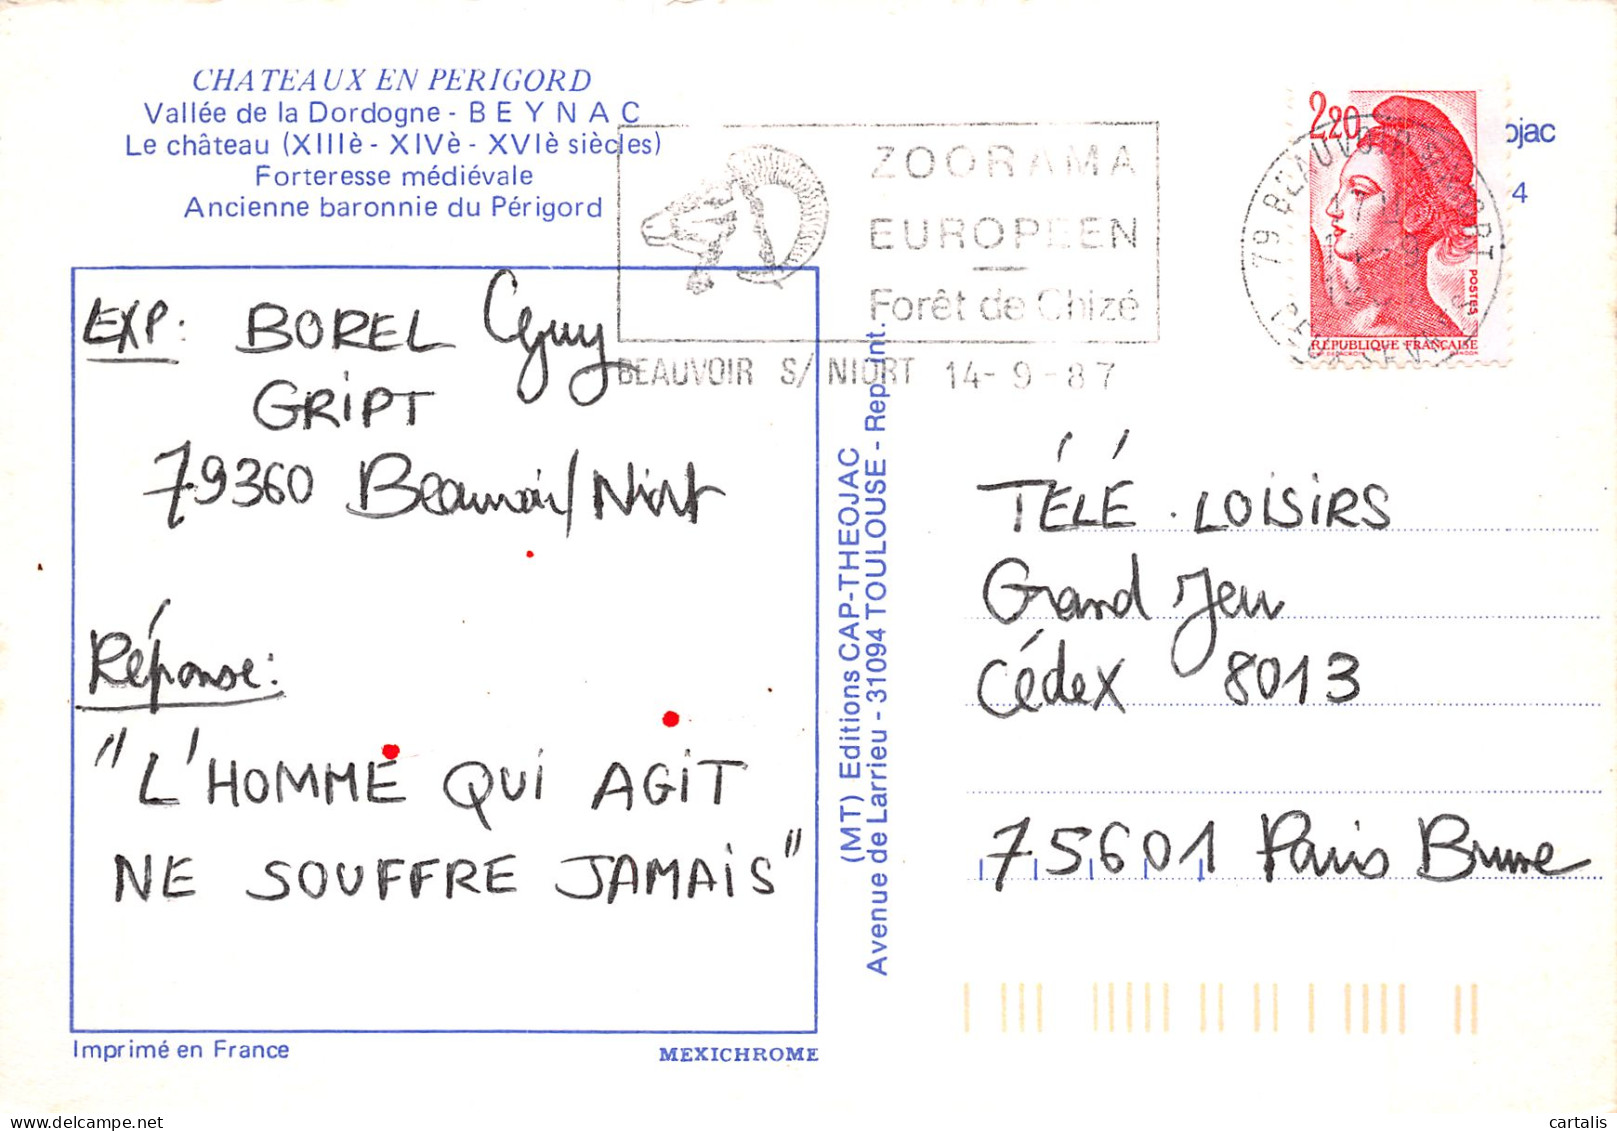 CHATEAUX EN PERIGORD
Vallée de la Dordogne - BEYNAC
Le château (XIIIè - XIVè - XVIè siècles)
Forteresse médiévale
Ancienne baronnie du Périgord
EXP: BOREL Guy
GRIPT
79360 Beauvoir/Niort
Réponse:
"L'HOMME QUI AGIT
NE SOUFFRE JAMAIS"
Imprimé en France
MEXICHROME
(MT) Editions CAP-THEOJAC
Avenue de Larrieu - 31094 TOULOUSE - Rep. Int.
ZOORAMA
EUROPEEN
Forêt de Chizé
BEAUVOIR S/ NIORT 14-9-87
2,20
POSTES
RÉPUBLIQUE FRANÇAISE
79 BEAUVOIR
ojac
4
TÉLÉ.LOISIRS
Grand Jeu
Cédex 8013
75601 Paris Brune
cartalis